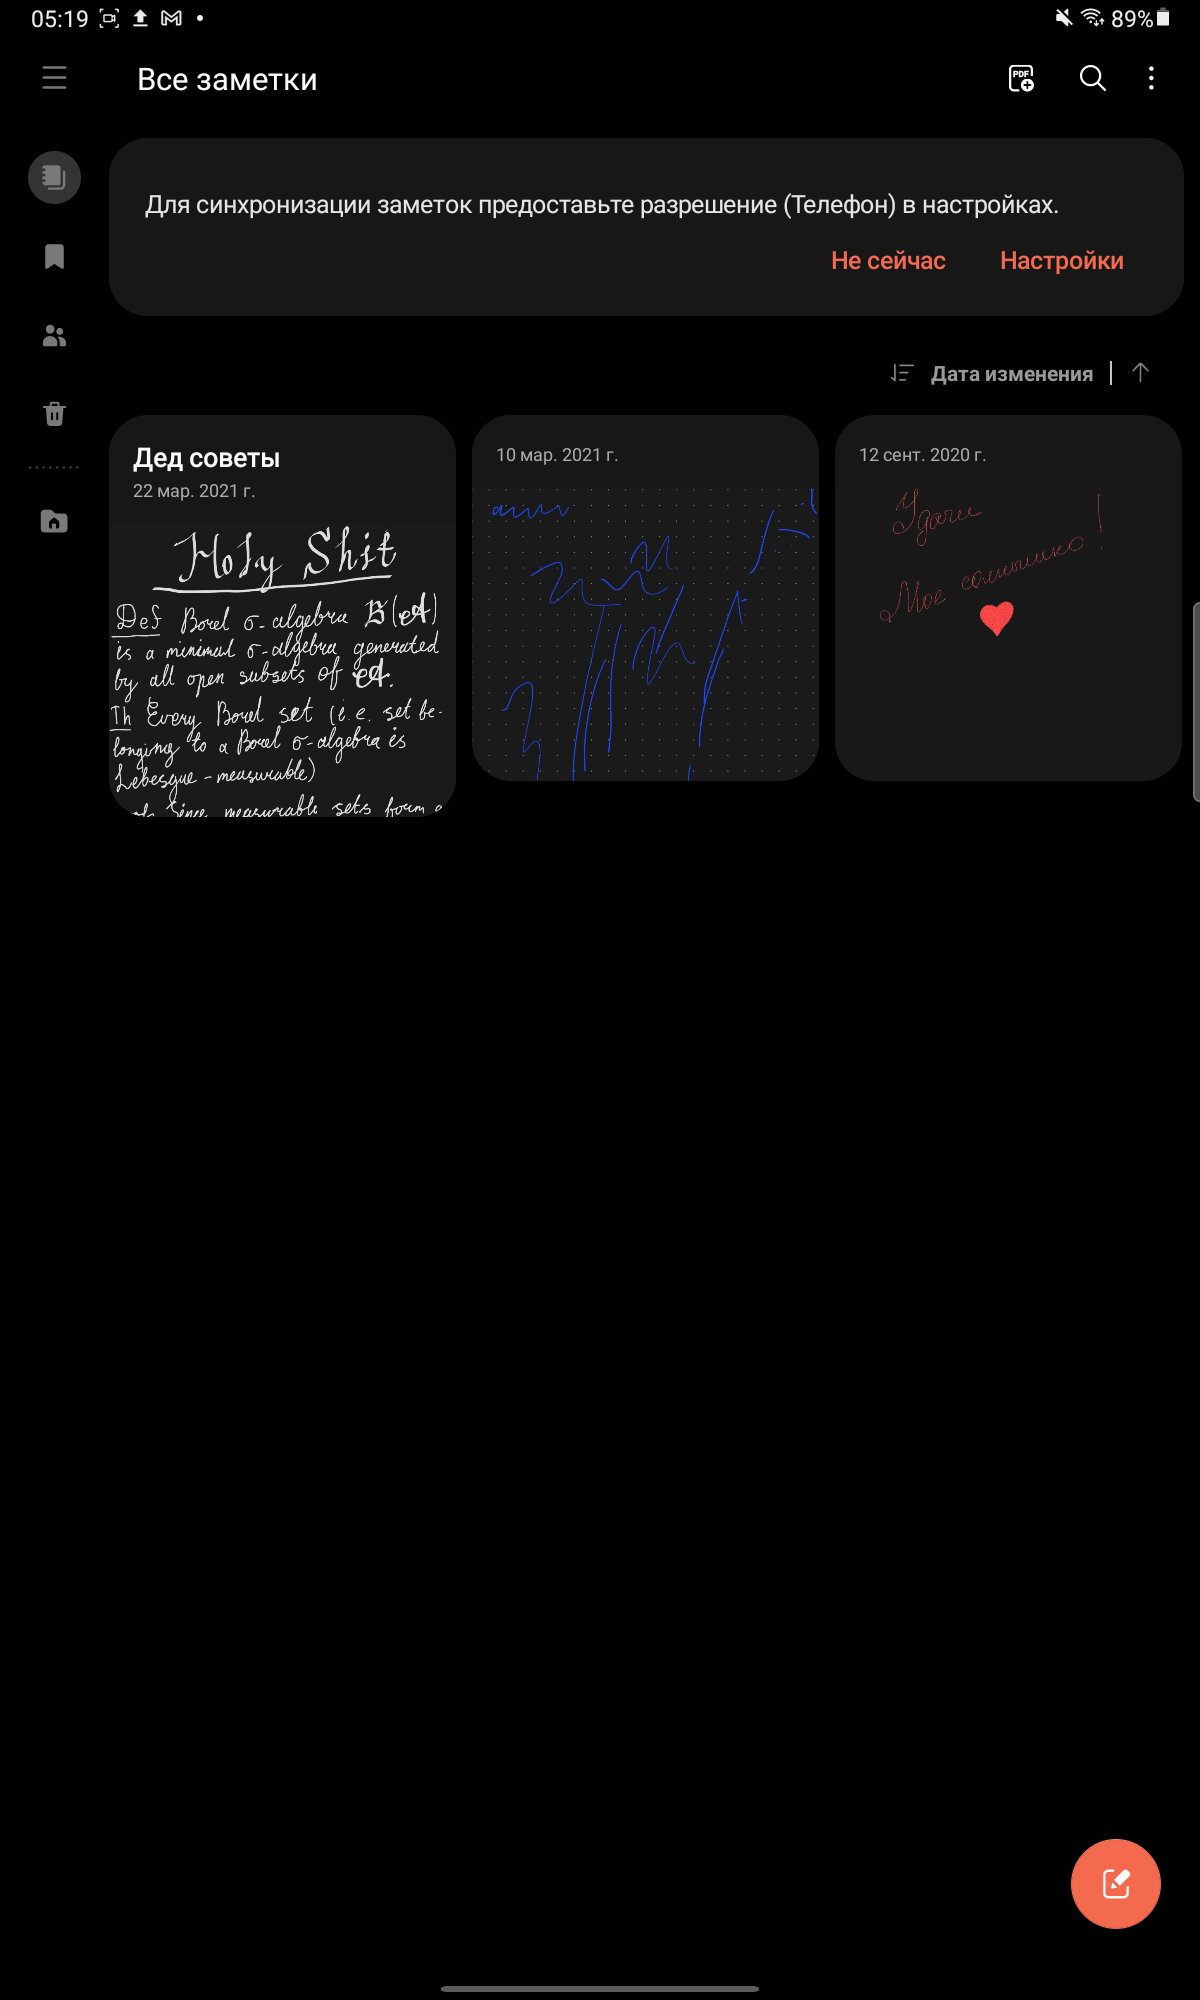 05:19
89%
Все заметки
PDF
Для синхронизации заметок предоставьте разрешение (Телефон) в настройках.
Не сейчас Настройки
Дата изменения
Дед советы
22 мар. 2021 г.
Holy Shit
Def Borel σ-algebra B(A)
is a minimal σ-algebra generated
by all open subsets of A.
Th Every Borel set (i.e. set be-
longing to a Borel σ-algebra is
Lebesgue-measurable)
Since measurable sets form a
10 мар. 2021 г.
12 сент. 2020 г.
Удачи
Мое солнышко!